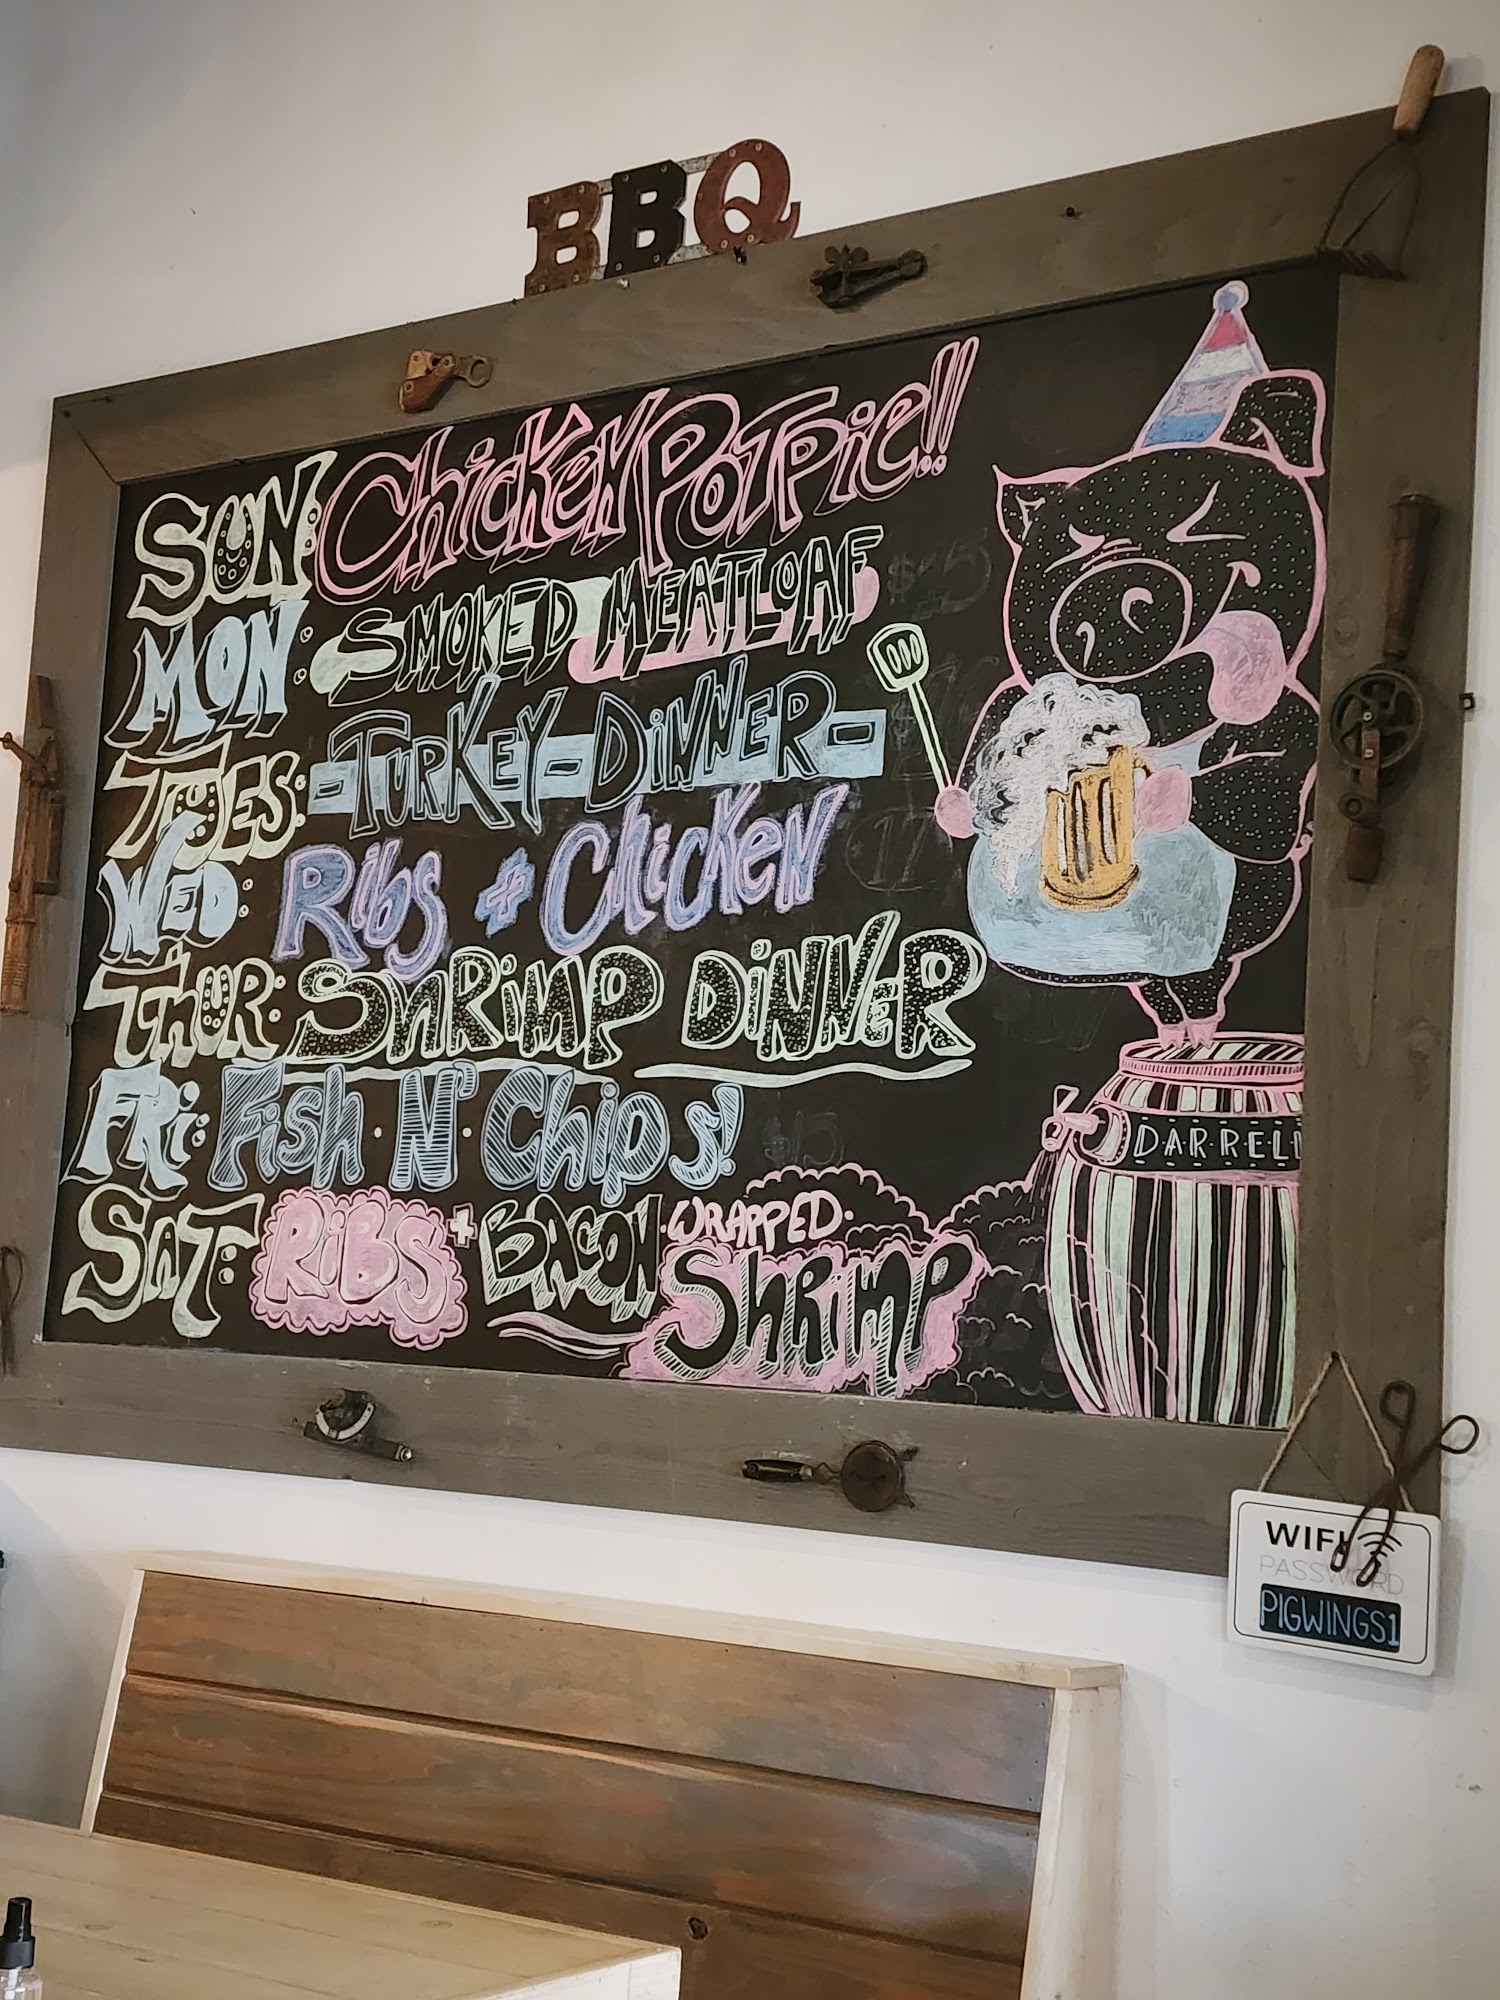 BBQ
SUN: Chicken Pot Pie!!
MON: SMOKED MEATLOAF
TUES: -TURKEY-DINNER-
WED: Ribs + Chicken
THUR: SHRIMP DINNER
FRi: Fish·N'·Chips!
SAT: RiBS + BACON·WRAPPED·
SHRIMP
$15
$17
$15
DARRELL
WIFI
PASSWORD
PIGWINGS1